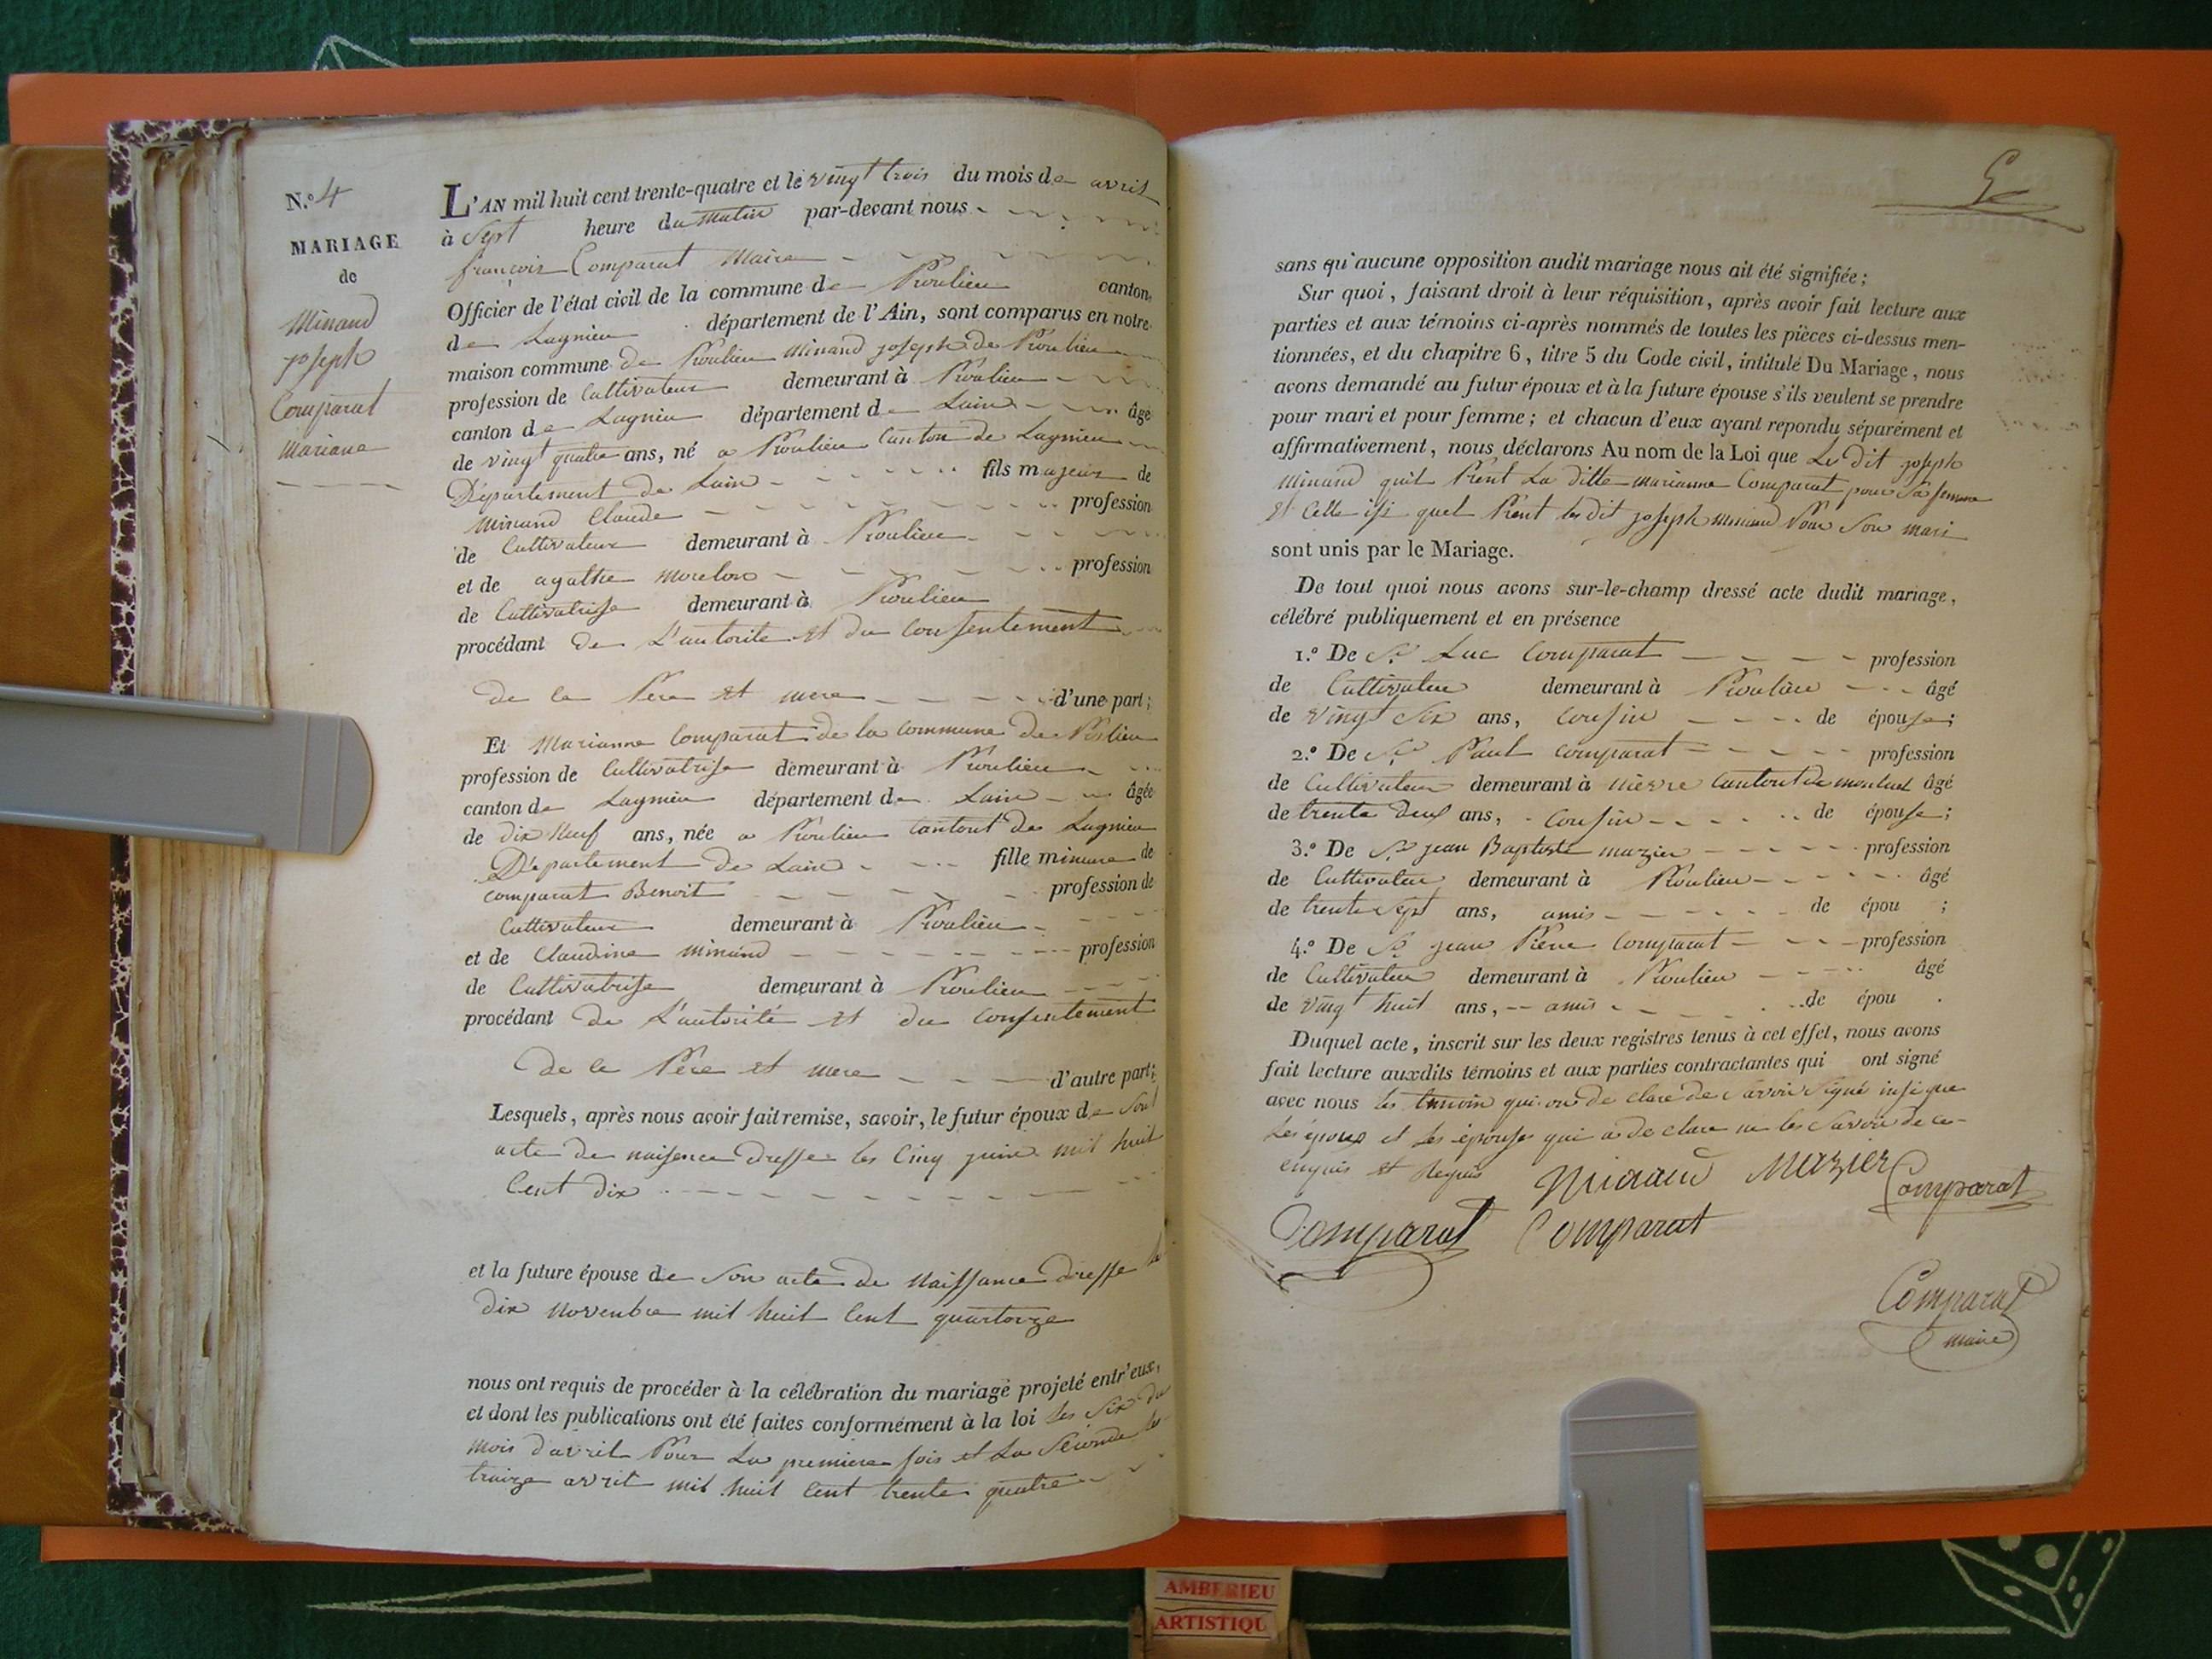 N.º 4
MARIAGE
de
Minand
joseph
Comparat
Mariane
L'AN mil huit cent trente-quatre et le vingt trois du mois de avril
à Sept heure du Matin par-devant nous
françois Comparat Maire
Officier de l'état civil de la commune de Proulieu canton
de Lagnieu département de l'Ain, sont comparus en notre
maison commune de Proulieu Minand joseph de Proulieu
profession de Cultivateur demeurant à Proulieu
canton de Lagnieu département de Lain âgé
de vingt quatre ans, né a Proulieu Canton de Lagnieu
Département de Lain fils majeur de
Minand Claude profession
de Cultivateur demeurant à Proulieu
et de agathe profession
de Cultivatrisse demeurant à Proulieu
procédant de L'autorite et du Consentement
de ce Pere et mere d'une part;
Et Marianne Comparat de la commune de
profession de Cultivatrise demeurant à Proulieu
canton de Lagnieu département de Lain âgée
de dix Neuf ans, née a Proulieu Cantont de Lagnieu
Département de Lain fille mineure de
comparat Benoit profession de
Cultivateur demeurant à Proulieu
et de Claudine Minand profession
de Cultivatrise demeurant à Proulieu
procédant de L'autorité et du Consentement
de ce Pére et mere d'autre part;
Lesquels, après nous avoir fait remise, savoir, le futur époux de Son
acte de naisence dresse les Cinq juin mil huit
Cent dix
et la future épouse de Son acte de Naissance dresse le
dix Novenbre mil huit Cent quartorze
nous ont requis de procéder à la célébration du mariage projeté entr'eux,
et dont les publications ont été faites conformément à la loi les Six du
mois d'avril Pour La premiere fois et La Séconde les
traize avril mil huit Cent trente quatre
sans qu'aucune opposition audit mariage nous ait été signifiée;
Sur quoi, faisant droit à leur réquisition, après avoir fait lecture aux
parties et aux témoins ci-après nommés de toutes les pièces ci-dessus men-
tionnées, et du chapitre 6, titre 5 du Code civil, intitulé Du Mariage, nous
avons demandé au futur époux et à la future épouse s'ils veulent se prendre
pour mari et pour femme; et chacun d'eux ayant repondu séparément et
affirmativement, nous déclarons Au nom de la Loi que Le dit joseph
Minand quil Prent La ditte marianne Comparat pour Sa femme
et Celle isi quel Prent les dit joseph Minand Pour Son mari
sont unis par le Mariage.
De tout quoi nous avons sur-le-champ dressé acte dudit mariage,
célébré publiquement et en présence
1.º De Sr. Luc Comparat profession
de Cultivateu demeurant à Proulieu âgé
de vingt Six ans, cousin de épouse;
2.º De Sr. Paul comparat profession
de Cultivateur demeurant à Nièvre Cantont de montluel âgé
de trente deux ans, cousin de épouse;
3.º De Sr. jean Baptiste mazier profession
de Cultivateu demeurant à Proulieu âgé
de trente Sept ans, amis de épou ;
4.º De Sr. jean Piere Comparat profession
de Cultivateu demeurant à Proulieu âgé
de vingt huit ans, amis de épou .
Duquel acte, inscrit sur les deux registres tenus à cet effet, nous avons
fait lecture auxdits témoins et aux parties contractantes qui ont signé
avec nous les temoin qui on de clare de Savoir Signé insi que
Les époux et les épouse qui a de clare ne les Savoir de ce
enquis et Requis Minand Mazier Comparat
Comparat Comparat
Comparat
maire
AMBERIEU
ARTISTIQU